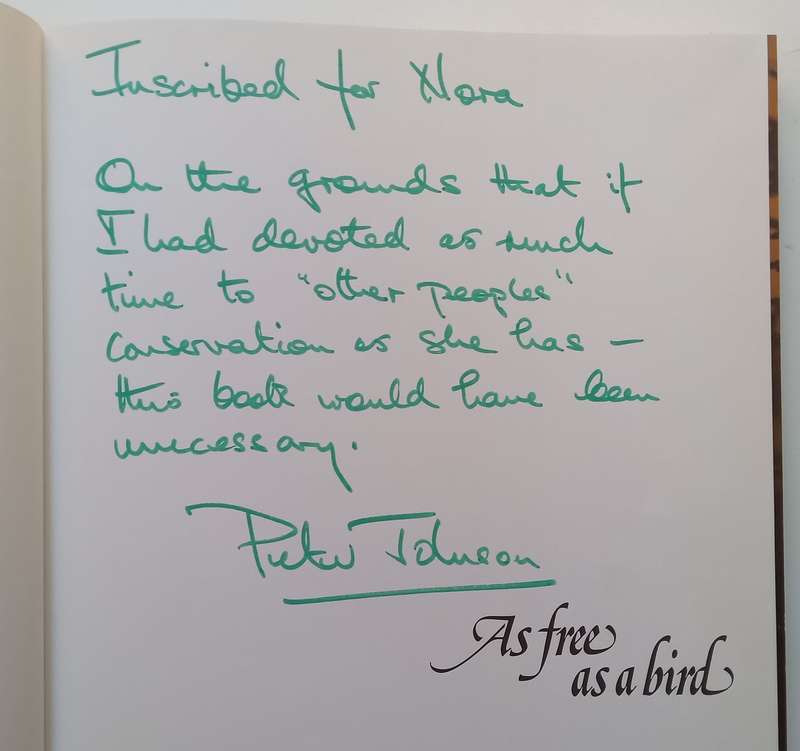 Inscribed for Nora
On the grounds that if
I had devoted as much
time to "other peoples"
conservation as she has –
this book would have been
unnecessary.
Peter Johnson
As free
as a bird